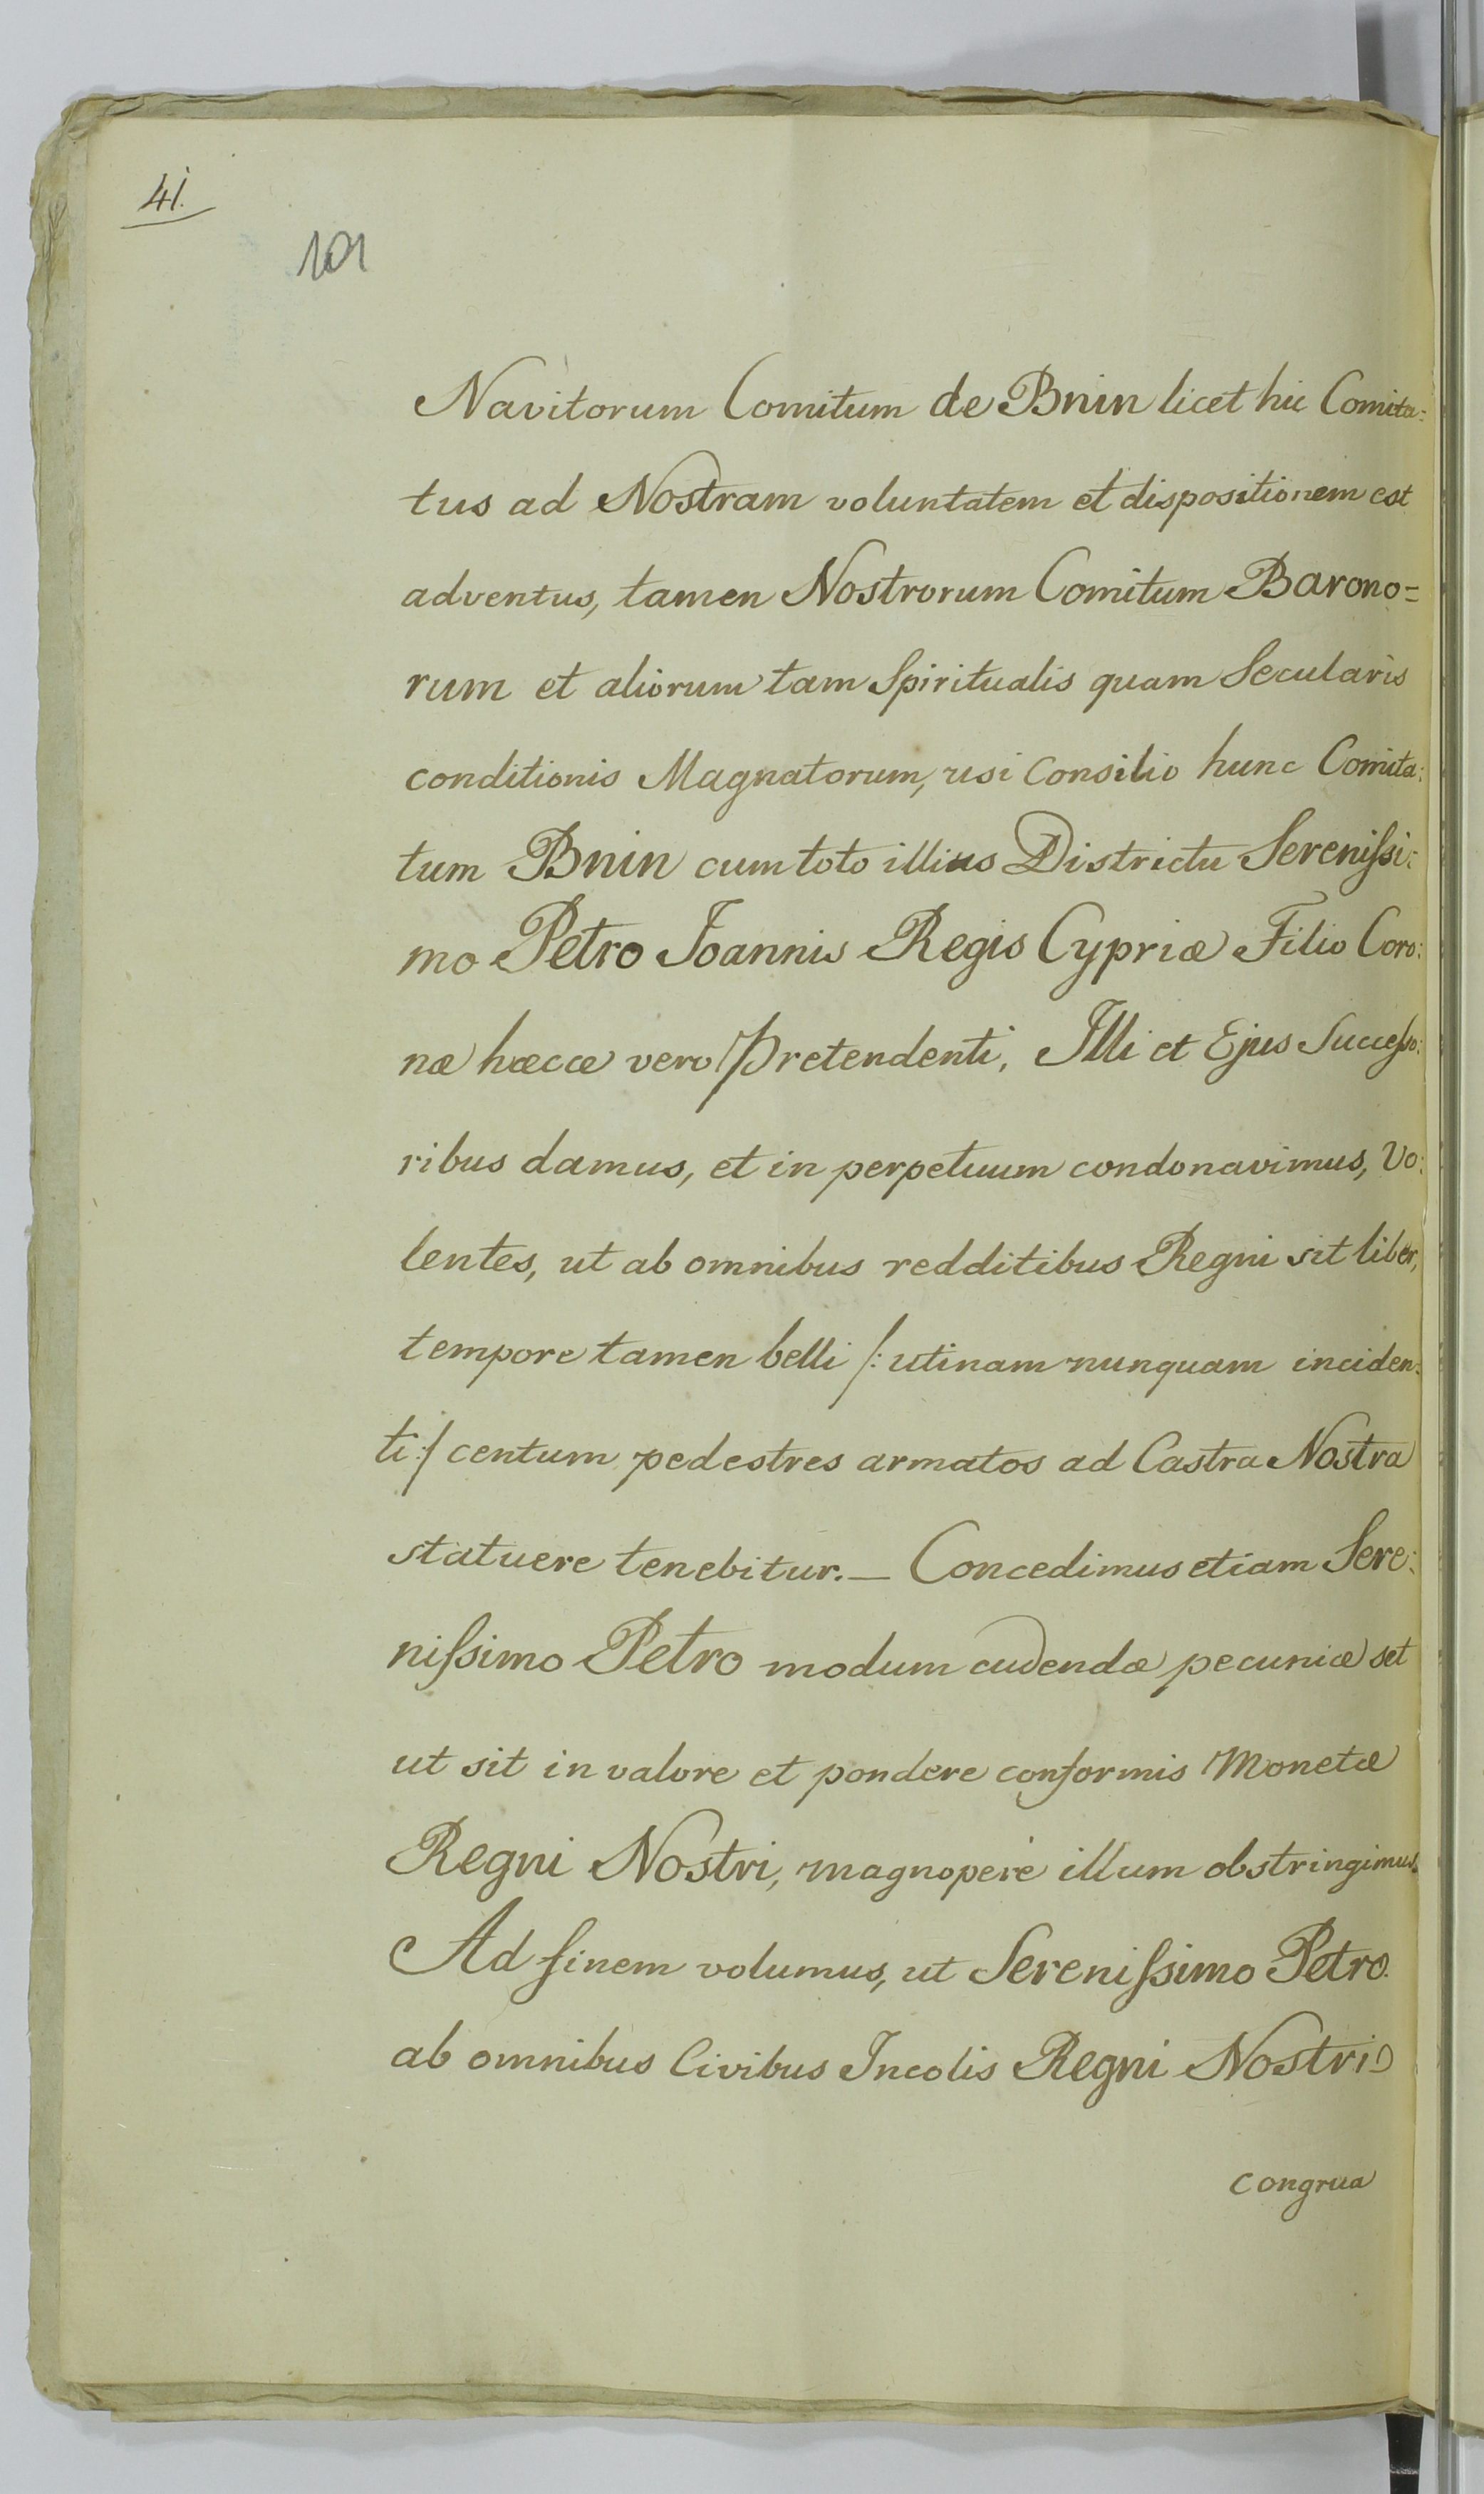 41.
101
Navitorum Comitum de Bnin licet hic Comita:
tus ad Nostram voluntatem et dispositionem est
adventus, tamen Nostrorum Comitum Barono=
rum et aliorum tam Spiritualis quam Secularis
conditionis Magnatorum, usi Consilio hunc Comita:
tum Bnin cum toto illius Districtu Sereniſsi:
mo Petro Joannis Regis Cypriæ Filio Coro:
næ hæcce vero Pretendenti, Illi et Ejus Succeſso:
ribus damus, et in perpetuum condonavimus, Vo:
lentes, ut ab omnibus redditibus Regni sit liber,
tempore tamen belli /: utinam nunquam inciden:
ti :/ centum pedestres armatos ad Castra Nostra
statuere tenebitur. — Concedimus etiam Sere:
niſsimo Petro modum cudendæ pecuniæ set
ut sit in valore et pondere conformis Monetæ
Regni Nostri, magnopere illum obstringimus.
Ad finem volumus, ut Sereniſsimo Petro
ab omnibus Civibus Incolis Regni Nostri
congrua